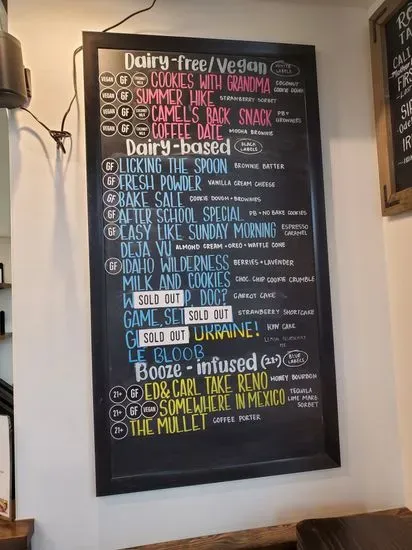 Dairy-free/Vegan WHITE LABELS
VEGAN GF COOKIES WITH GRANDMA COCONUT COOKIE DOUGH
VEGAN GF SUMMER HIKE STRAWBERRY SORBET
VEGAN GF CAMEL'S BACK SNACK PB + BROWNIES
VEGAN GF COFFEE DATE MOCHA BROWNIE
Dairy-based BLACK LABELS
GF LICKING THE SPOON BROWNIE BATTER
GF FRESH POWDER VANILLA CREAM CHEESE
GF BAKE SALE COOKIE DOUGH + BROWNIES
GF AFTER SCHOOL SPECIAL PB + NO BAKE COOKIES
GF EASY LIKE SUNDAY MORNING ESPRESSO CARAMEL
DEJA VU ALMOND CREAM + OREO + WAFFLE CONE
GF IDAHO WILDERNESS BERRIES + LAVENDER
MILK AND COOKIES CHOC. CHIP COOKIE CRUMBLE
W SOLD OUT P, DOC? CARROT CAKE
GAME, SE SOLD OUT STRAWBERRY SHORTCAKE
G SOLD OUT UKRAINE! KYIV CAKE
LE BLOOB
Booze-infused (21+) BLUE LABELS
21+ GF ED & CARL TAKE RENO HONEY BOURBON
21+ GF VEGAN SOMEWHERE IN MEXICO TEQUILA LIME MARG SORBET
21+ THE MULLET COFFEE PORTER